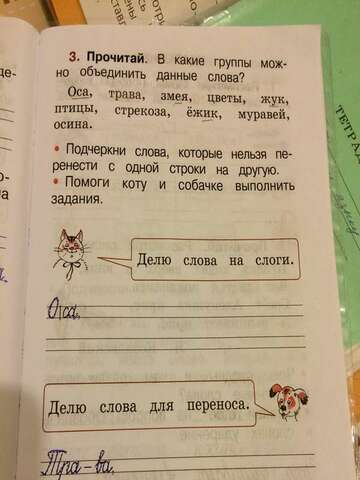 3. Прочитай. В какие группы мож-
но объединить данные слова?
Оса, трава, змея, цветы, жук,
птицы, стрекоза, ёжик, муравей,
осина.
• Подчеркни слова, которые нельзя пе-
ренести с одной строки на другую.
• Помоги коту и собачке выполнить
задания.
Делю слова на слоги.
О|са.
Делю слова для переноса.
Тра-ва.
ТЕТРАД